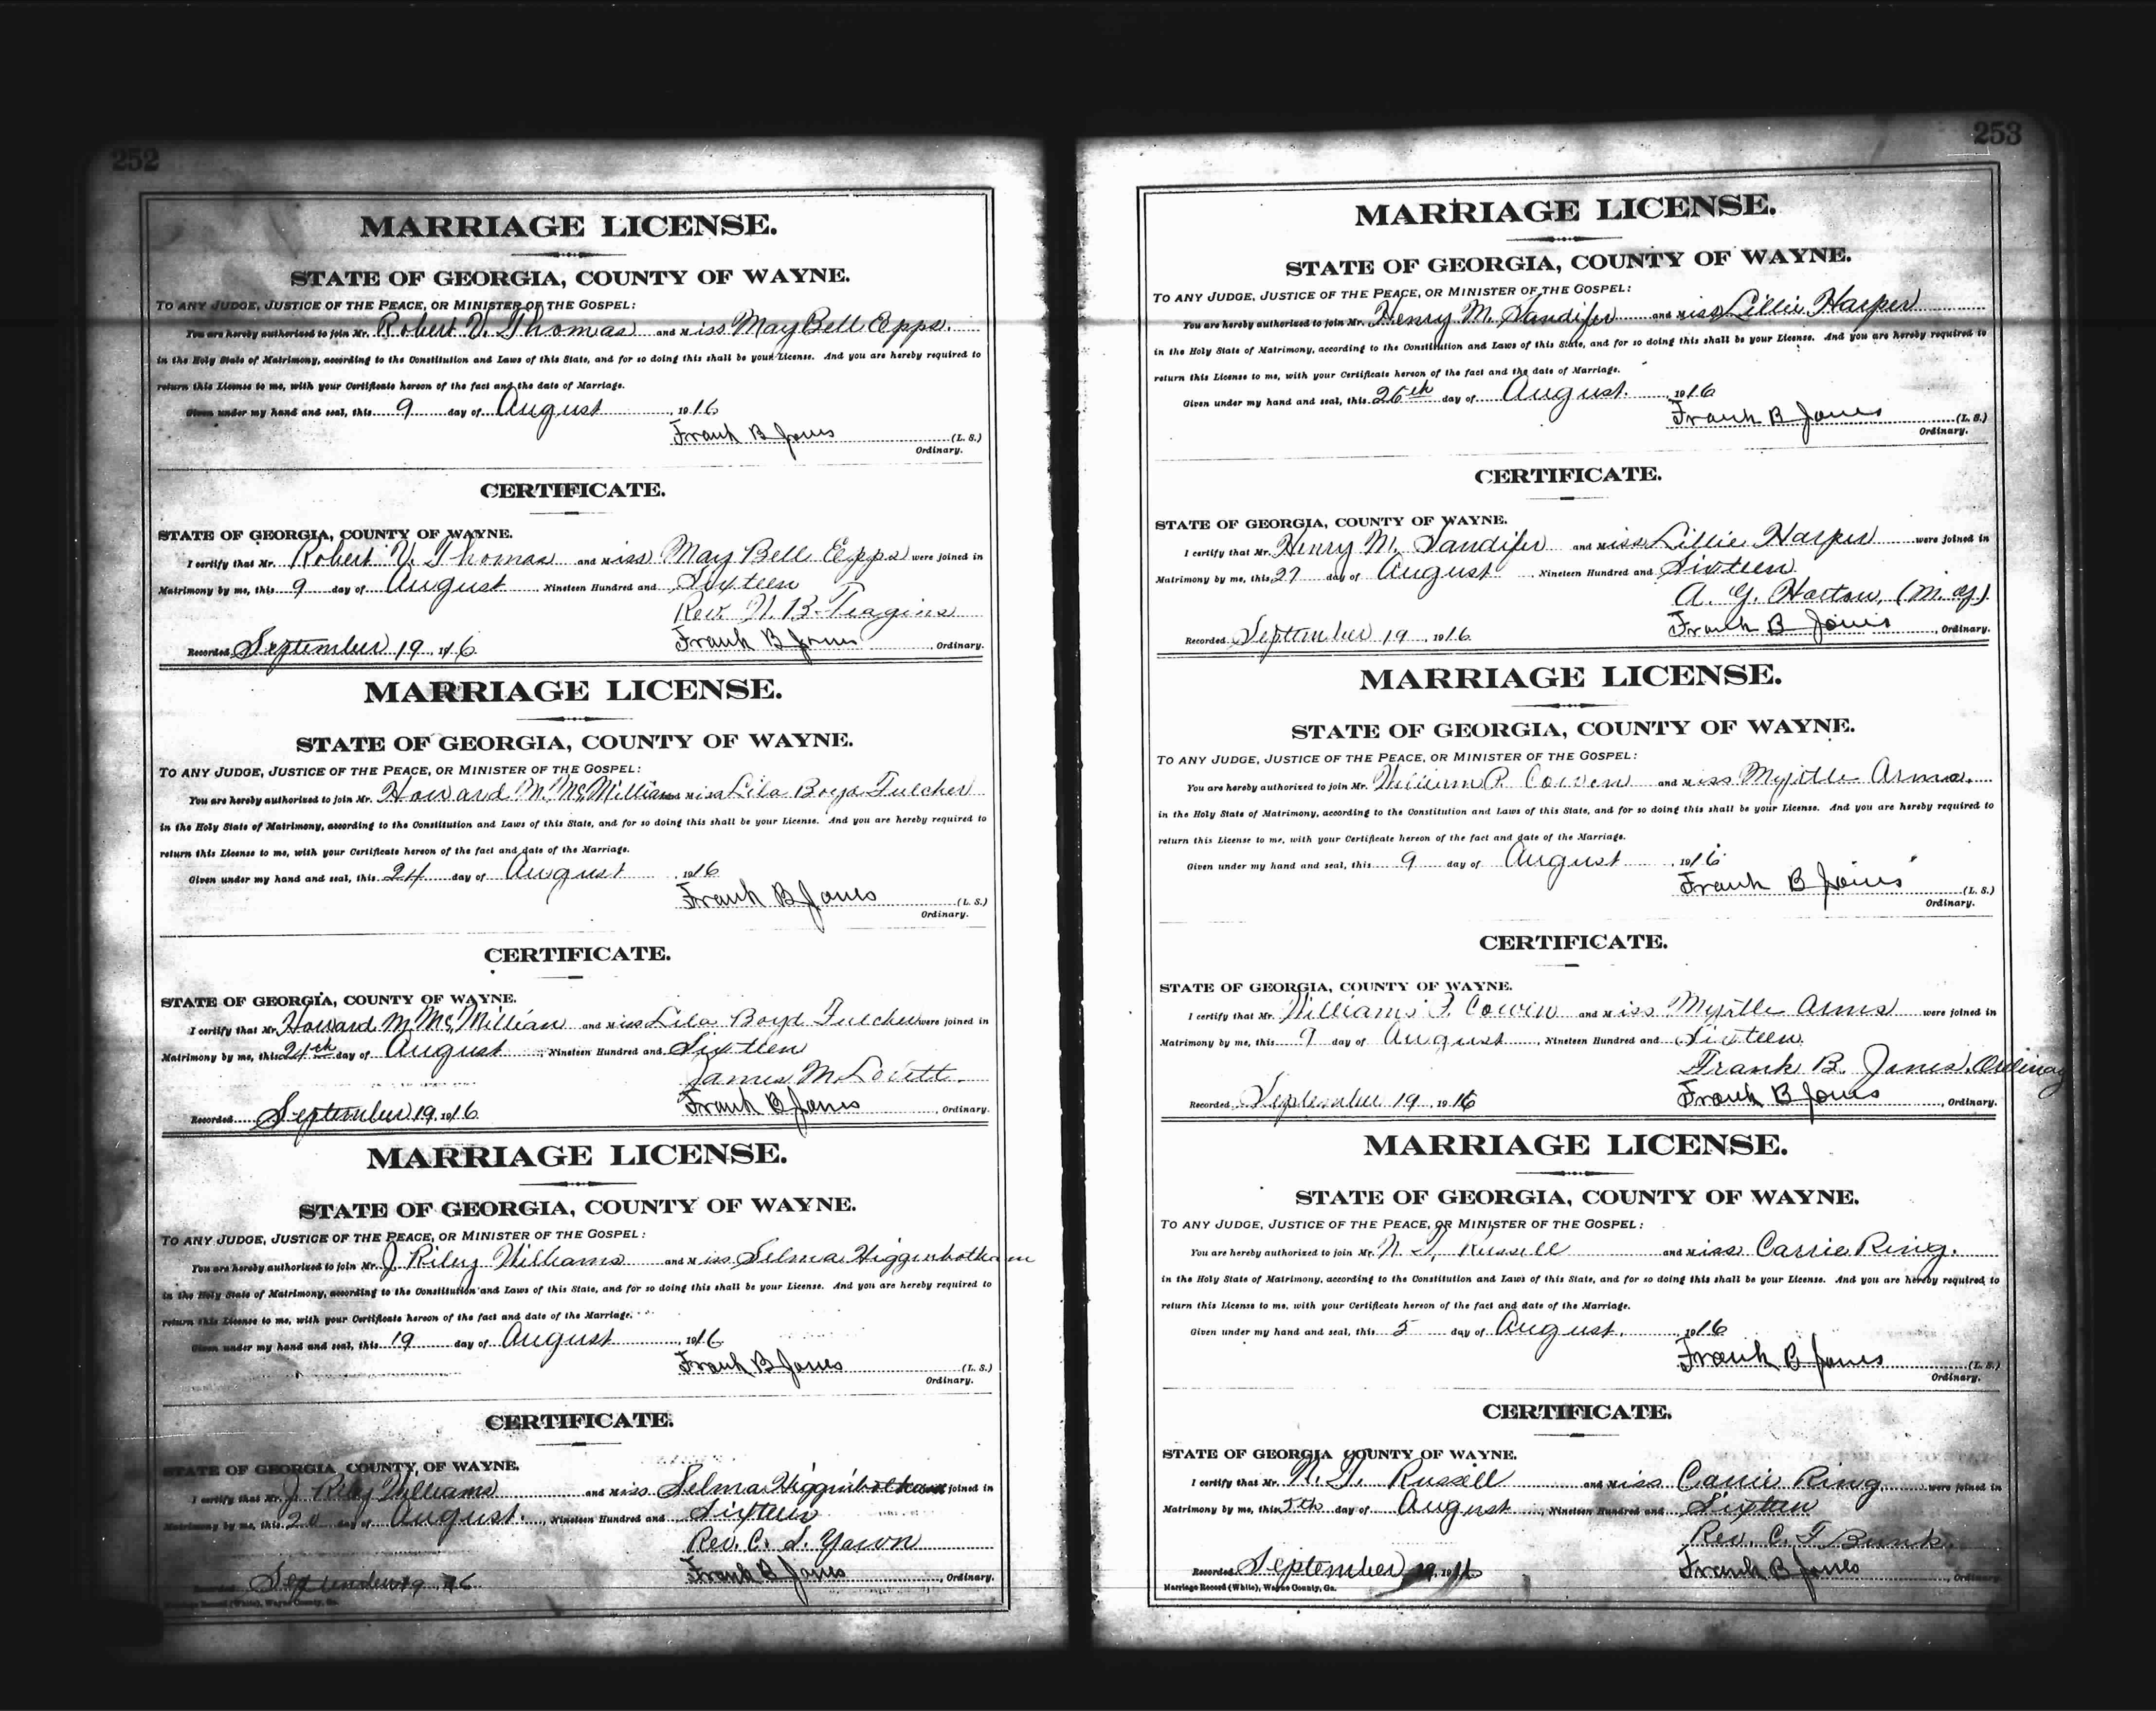 252
MARRIAGE LICENSE.
STATE OF GEORGIA, COUNTY OF WAYNE.
TO ANY JUDGE, JUSTICE OF THE PEACE, OR MINISTER OF THE GOSPEL:
You are hereby authorized to join Mr. Robert V. Thomas and Miss May Bell Epps.
in the Holy State of Matrimony, according to the Constitution and Laws of this State, and for so doing this shall be your License. And you are hereby required to
return this License to me, with your Certificate hereon of the fact and the date of Marriage.
Given under my hand and seal, this 9 day of August, 1916
Frank B Jones (L. S.)
Ordinary.
CERTIFICATE.
STATE OF GEORGIA, COUNTY OF WAYNE.
I certify that Mr. Robert V. Thomas and Miss May Bell Epps were joined in
Matrimony by me, this 9 day of August, Nineteen Hundred and Sixteen
Rev. N. B.
Recorded September 19, 1916 Frank B Jones, Ordinary.
MARRIAGE LICENSE.
STATE OF GEORGIA, COUNTY OF WAYNE.
TO ANY JUDGE, JUSTICE OF THE PEACE, OR MINISTER OF THE GOSPEL:
You are hereby authorized to join Mr. Howard M. McMillian and Miss Lila Boyd Fulcher
in the Holy State of Matrimony, according to the Constitution and Laws of this State, and for so doing this shall be your License. And you are hereby required to
return this License to me, with your Certificate hereon of the fact and date of the Marriage.
Given under my hand and seal, this 24 day of August, 1916
Frank B Jones (L. S.)
Ordinary.
CERTIFICATE.
STATE OF GEORGIA, COUNTY OF WAYNE.
I certify that Mr. Howard M. McMillian and Miss Lila Boyd Fulcher were joined in
Matrimony by me, this 24th day of August, Nineteen Hundred and Sixteen
James M. Lovett
Recorded September 19, 1916 Frank B Jones, Ordinary.
MARRIAGE LICENSE.
STATE OF GEORGIA, COUNTY OF WAYNE.
TO ANY JUDGE, JUSTICE OF THE PEACE, OR MINISTER OF THE GOSPEL:
You are hereby authorized to join Mr. J Riley Williams and Miss Selma Higginbotham
in the Holy State of Matrimony, according to the Constitution and Laws of this State, and for so doing this shall be your License. And you are hereby required to
return this License to me, with your Certificate hereon of the fact and date of the Marriage.
Given under my hand and seal, this 19 day of August, 1916
Frank B Jones (L. S.)
Ordinary.
CERTIFICATE.
STATE OF GEORGIA, COUNTY OF WAYNE.
I certify that Mr. J Riley Williams and Miss Selma Higginbotham joined in
Matrimony by me, this 20 day of August, Nineteen Hundred and Sixteen
Rev. C. S. Yawn
Recorded September 19 16 Frank B Jones, Ordinary.
Marriage Record (White), Wayne County, Ga.
253
MARRIAGE LICENSE.
STATE OF GEORGIA, COUNTY OF WAYNE.
TO ANY JUDGE, JUSTICE OF THE PEACE, OR MINISTER OF THE GOSPEL:
You are hereby authorized to join Mr. Henry M. Sandifer and Miss Lillie Harper
in the Holy State of Matrimony, according to the Constitution and Laws of this State, and for so doing this shall be your License. And you are hereby required to
return this License to me, with your Certificate hereon of the fact and the date of Marriage.
Given under my hand and seal, this 26th day of August, 1916
Frank B Jones (L. S.)
Ordinary.
CERTIFICATE.
STATE OF GEORGIA, COUNTY OF WAYNE.
I certify that Mr. Henry M. Sandifer and Miss Lillie Harper were joined in
Matrimony by me, this 27 day of August, Nineteen Hundred and Sixteen
A. G. (M. G.)
Recorded September 19, 1916 Frank B Jones, Ordinary.
MARRIAGE LICENSE.
STATE OF GEORGIA, COUNTY OF WAYNE.
TO ANY JUDGE, JUSTICE OF THE PEACE, OR MINISTER OF THE GOSPEL:
You are hereby authorized to join Mr. William P. Cowen and Miss Myrtle Arms.
in the Holy State of Matrimony, according to the Constitution and Laws of this State, and for so doing this shall be your License. And you are hereby required to
return this License to me, with your Certificate hereon of the fact and date of the Marriage.
Given under my hand and seal, this 9 day of August, 1916
Frank B Jones (L. S.)
Ordinary.
CERTIFICATE.
STATE OF GEORGIA, COUNTY OF WAYNE.
I certify that Mr. William P. Cowin and Miss Myrtle Arms were joined in
Matrimony by me, this 9 day of August, Nineteen Hundred and Sixteen.
Frank B. Jones. Ordinary
Recorded September 19, 1916 Frank B Jones, Ordinary.
MARRIAGE LICENSE.
STATE OF GEORGIA, COUNTY OF WAYNE.
TO ANY JUDGE, JUSTICE OF THE PEACE, OR MINISTER OF THE GOSPEL:
You are hereby authorized to join Mr. Russell and Miss Carrie Ring.
in the Holy State of Matrimony, according to the Constitution and Laws of this State, and for so doing this shall be your License. And you are hereby required to
return this License to me, with your Certificate hereon of the fact and date of the Marriage.
Given under my hand and seal, this 5 day of August, 1916
Frank B Jones (L. S.)
Ordinary.
CERTIFICATE.
STATE OF GEORGIA COUNTY OF WAYNE.
I certify that Mr. Russell and Miss Carrie Ring were joined in
Matrimony by me, this 5th day of August, Nineteen Hundred and Sixteen
Rev. C. T Bunk.
Recorded September 19, 1916 Frank B Jones, Ordinary.
Marriage Record (White), Wayne County, Ga.